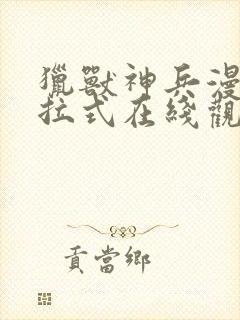 獵獸神兵漫
拉式在綫觀
貢當鄉